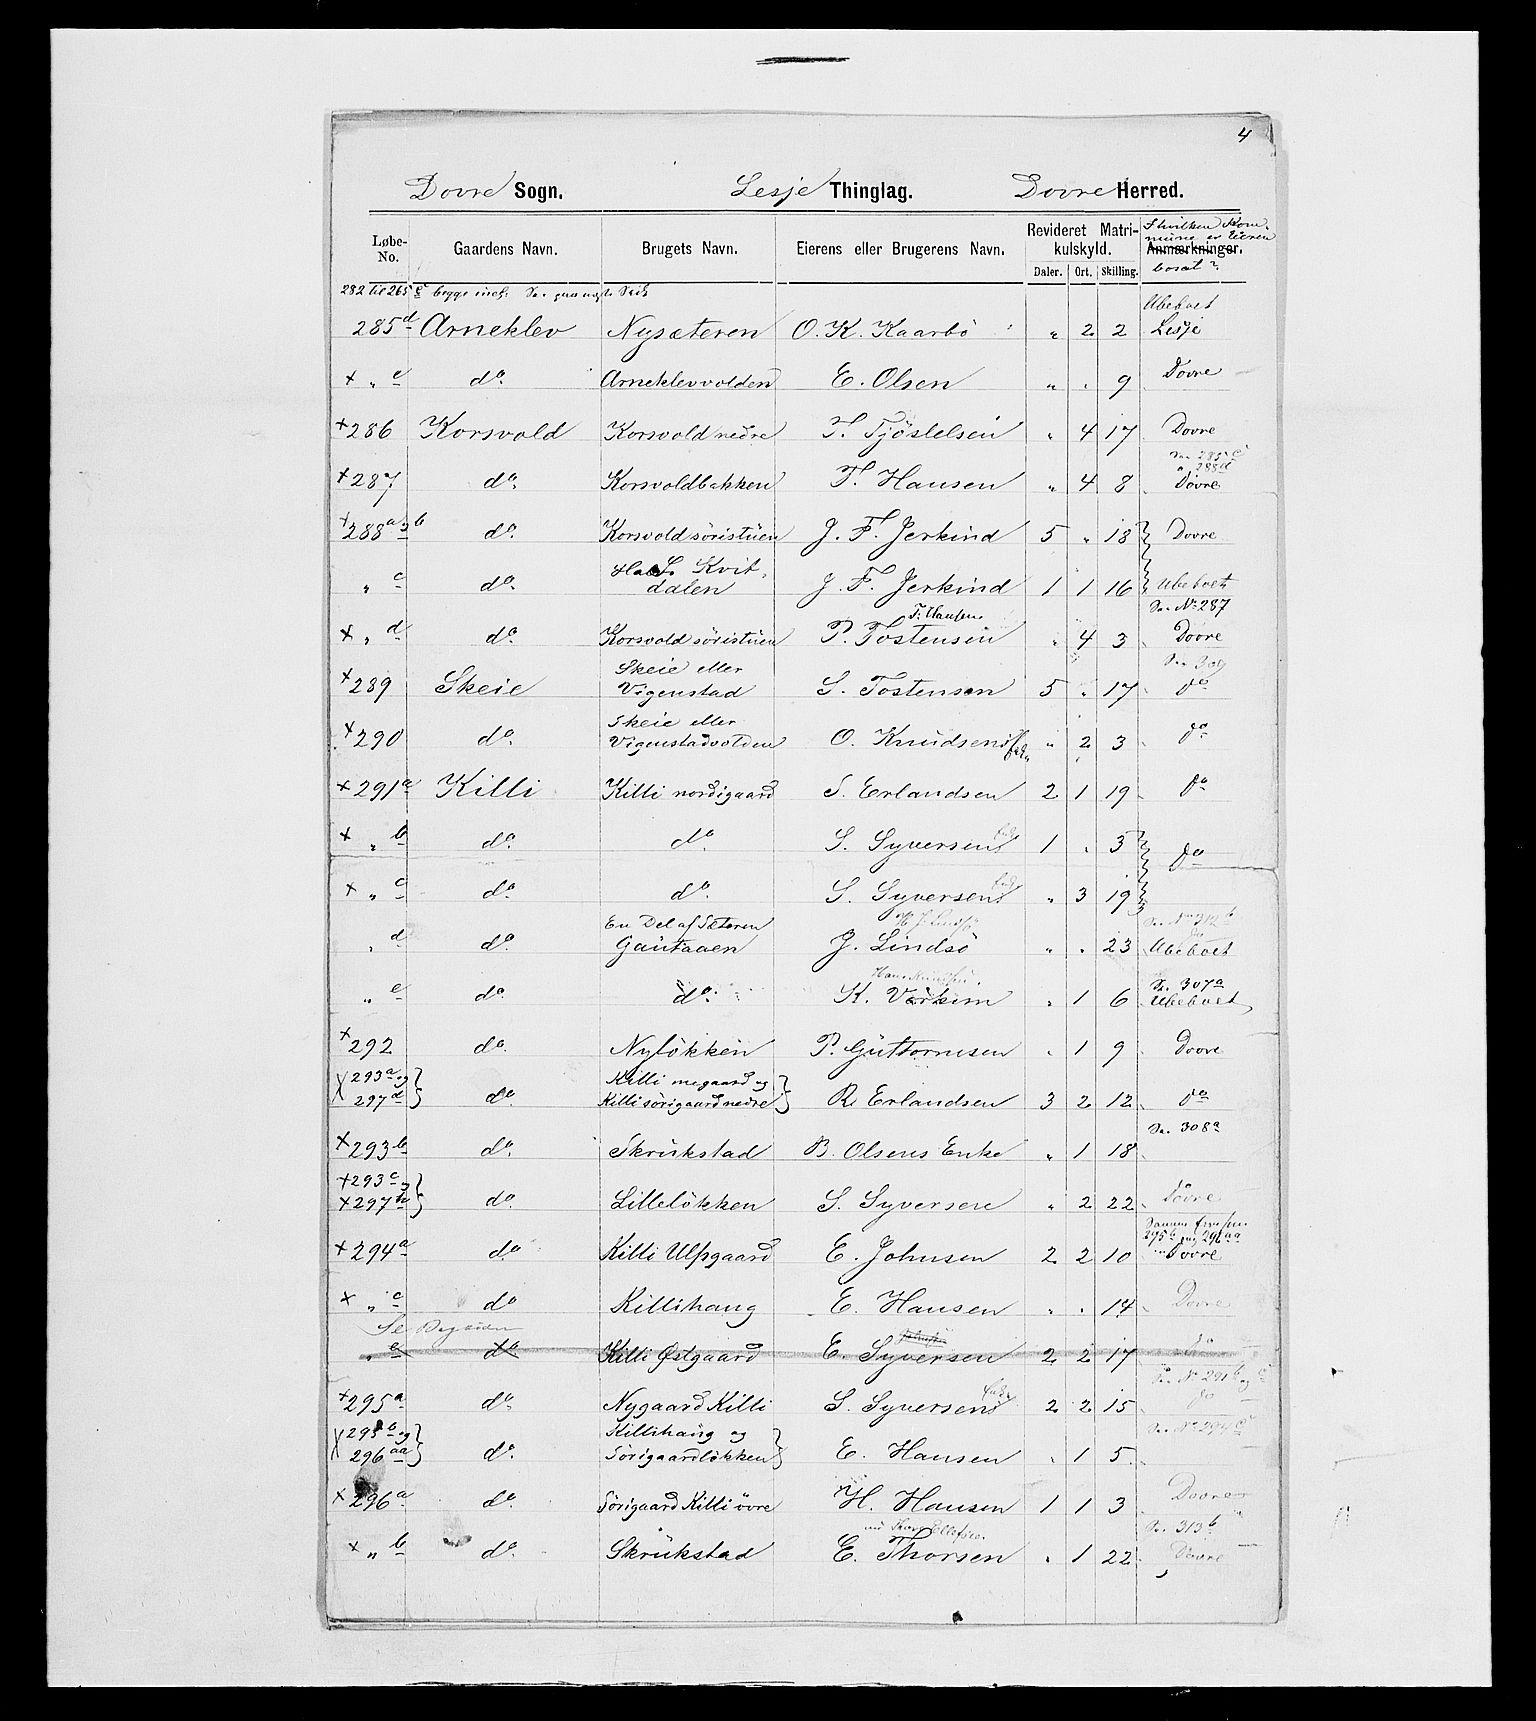 4
Dovre Sogn. Lesje Thinglag. Dovre Herred.
Løbe-No. Gaardens Navn. Brugets Navn. Eierens eller Brugerens Navn. Revideret Matrikulskyld. Daler. Ort. Skilling. Anmærkninger. I hvilken Kommune er Eieren bosat?
282 til 265 c begge incl.
285 d Arneklev Nysæteren O. K. Kaarbö „ 2 2 Ubeboet Lesje
+ „ e do. Arneklevvolden E. Olsen „ „ 9 Dovre
+ 286 Korsvold Korsvold nedre T. Tjöstelsen „ 4 17 Dovre
+ 287 do. Korsvoldbakken T. Hansen „ 4 8 288 d Dovre
+ 288 a og b do. Korsvold söristuen J. F. Jerkind 5 „ 18 Dovre
„ c do. Kvitdalen J. F. Jerkind 1 1 16 Ubeboet
+ „ d do. Korsvold söristuen P. Tostensen T. Hansen „ 4 3 Se. No 287 Dovre
+ 289 Skeie Skeie eller Vigenstad S. Tostensen 5 „ 17 do
+ 290 do. Skeie eller Vigenstadvolden O. Knudsen „ 2 3 do
+ 291 a Killi Killi nordigaard S. Erlandsen 2 1 19 do
+ „ b do. do. S. Syversen 1 „ 3 do
+ „ c do. do. S. Syversen „ 3 19
„ d do. En Del af Sæteren Gautaaen J. Lindsö „ „ 23 Se. No 312 b Ubeboet
„ e do. do. K. Værkim „ 1 6 Se. 307 a Ubeboet
+ 292 do. Nylökken P. Guttormsen „ 1 9 Dovre
+ 293 a og 297 d do. Killi megaard og Killi sörigaard nedre R. Erlandsen 3 2 12 do
+ 293 b do. Skrukstad B. Olsens Enke „ 1 18 Se. 308 a
+ 293 c og + 297 b do. Lillelökken S. Syversen „ 2 22 Dovre
+ 294 a do. Killi Ulfsgaard E. Johnsen 2 2 10 295 b og 296 aa Dovre
+ „ c do Killihaug E. Hansen „ „ 14 Dovre
Se Bagsiden
„ e do Killi Østgaard E. Syversen 2 2 17 do
+ 295 a do. Nygaard Killi S. Syversen 2 2 15 Se No 291 b og c do
+ 295 b og 296 aa do. Killihaug og Sörigaardlökken E. Hansen „ 1 5 Se No 294 c
+ 296 a do. Sörigaard Killi övre H. Hansen 1 1 3 Dovre
+ „ b do. Skrukstad E. Thorsen „ 1 22 Se. 313 b Dovre